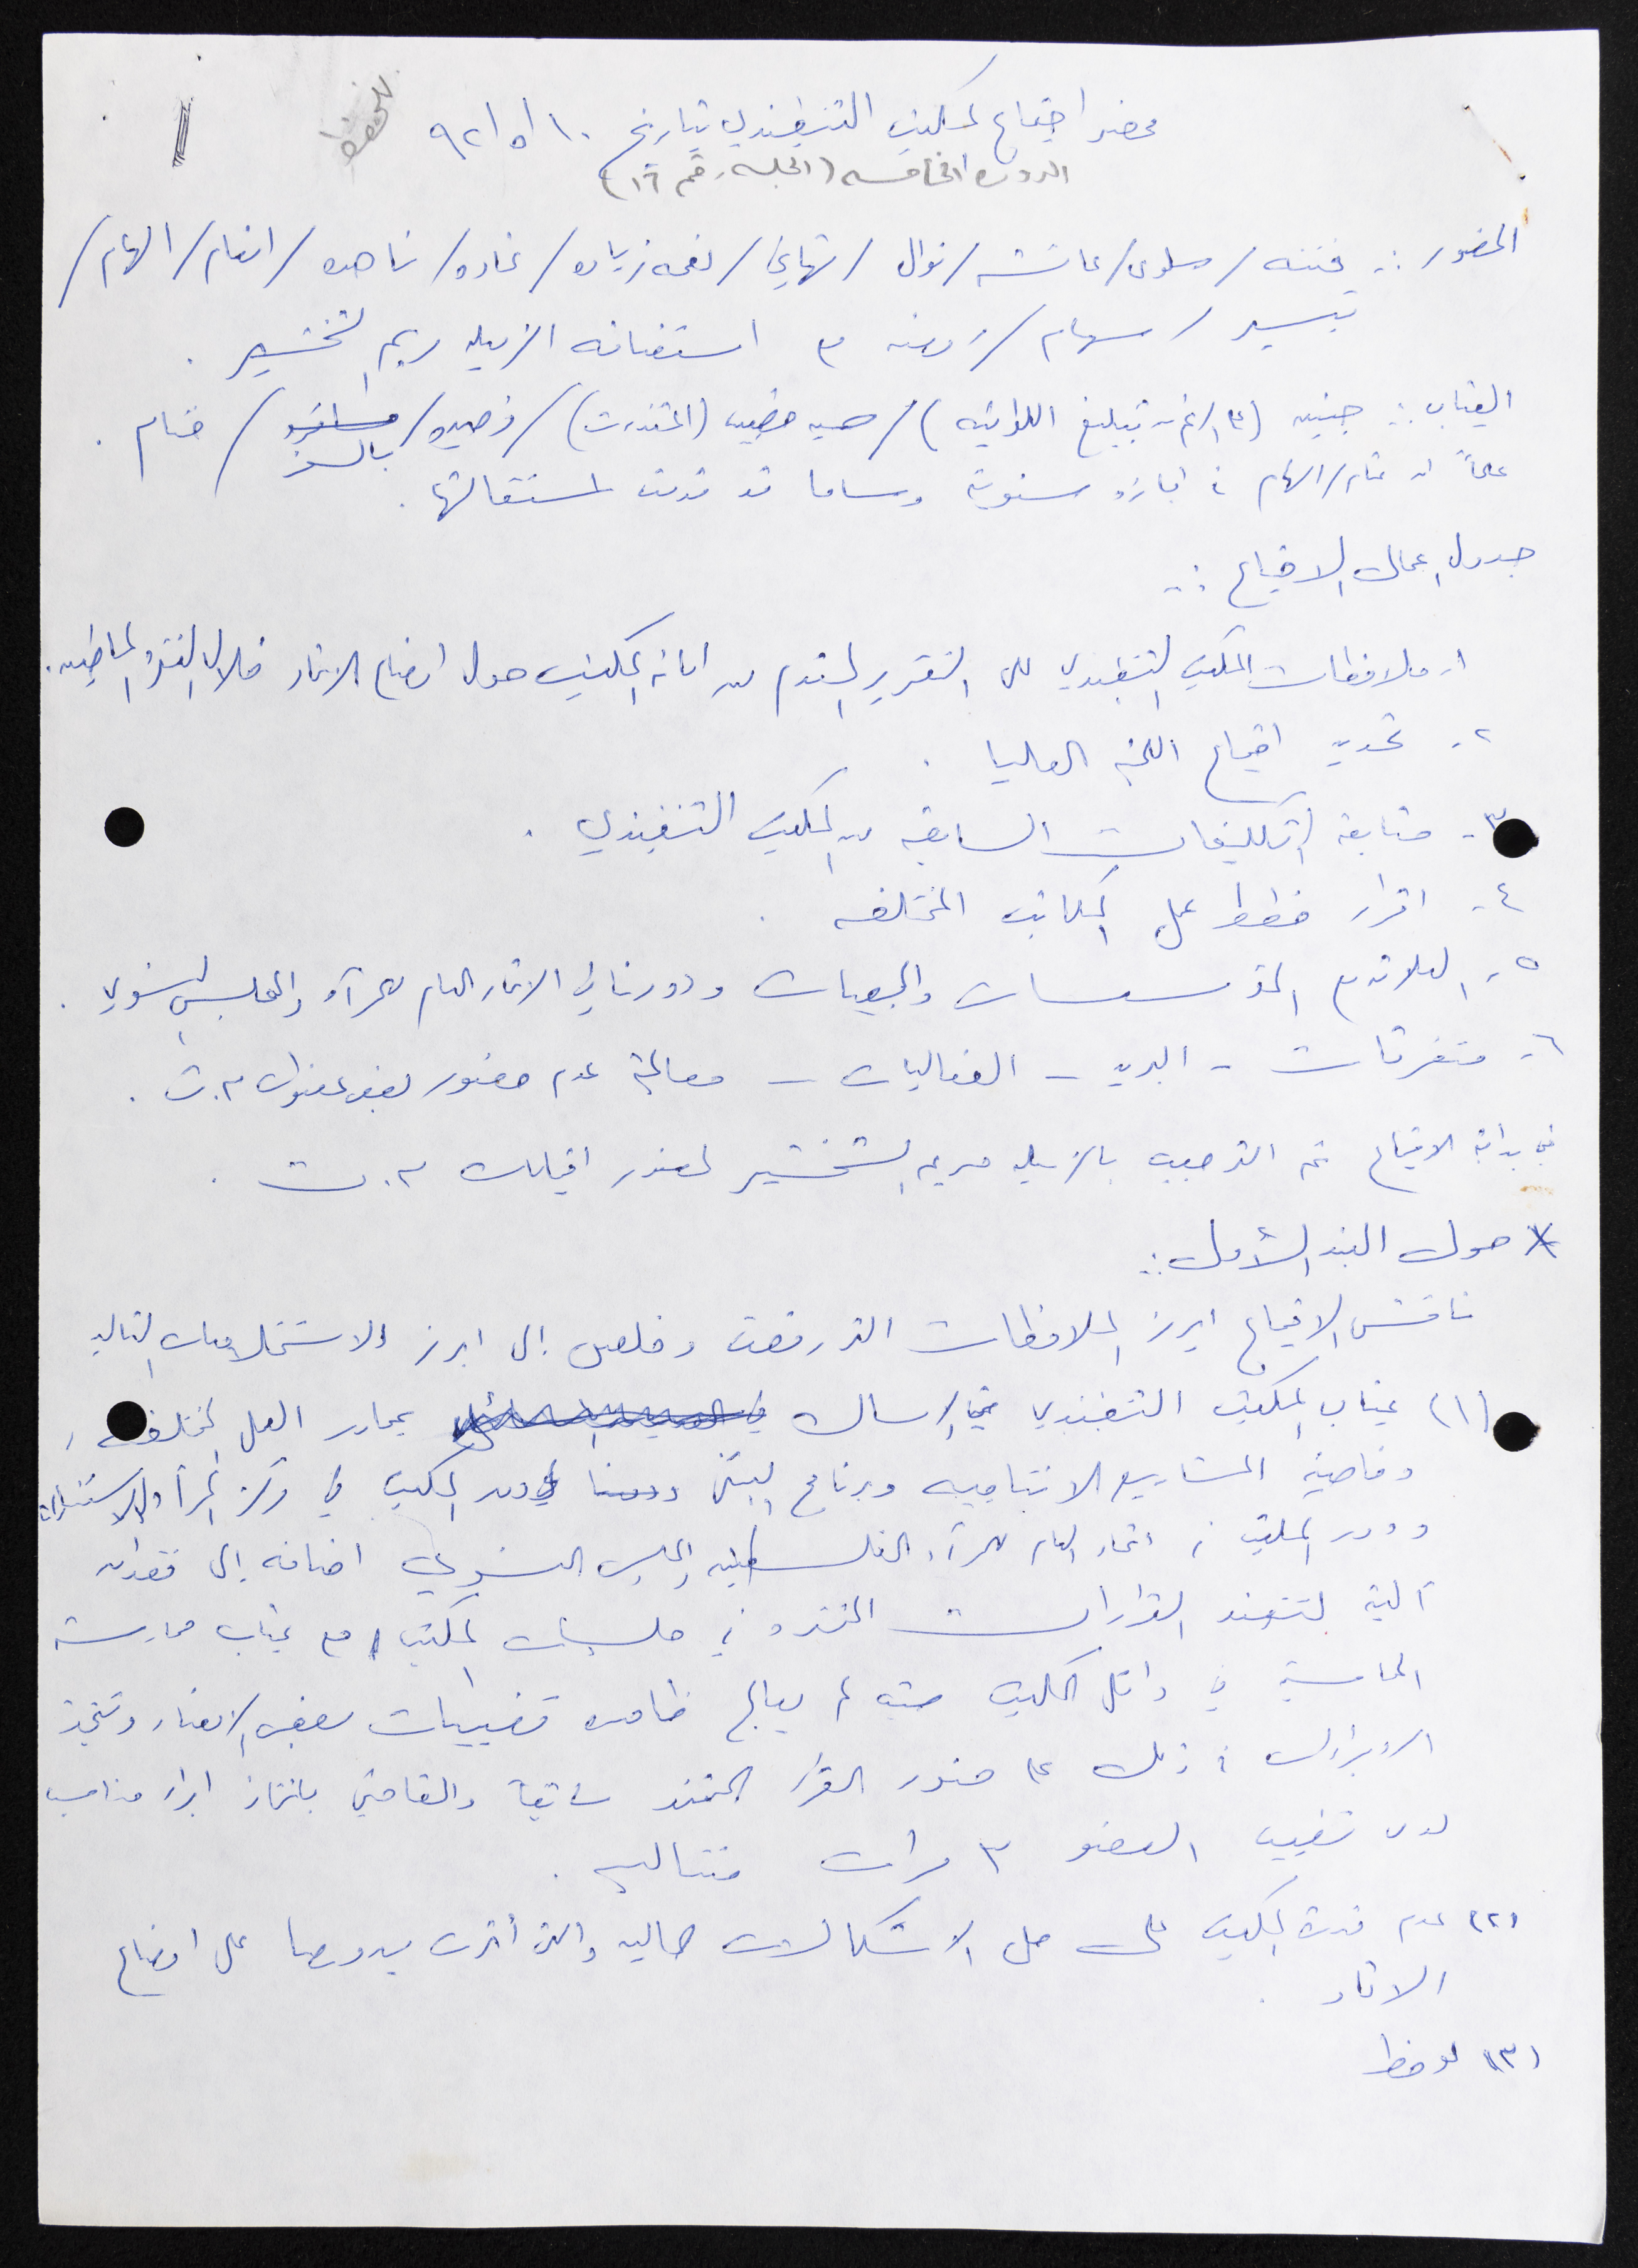 محضر اجتماع المكتب التنفيذي بتاريخ ١٠/٥/٩٢
الدورة الخامسه (الجلسه رقم ١٦)
الحضور :- فتنه / سلوى / عائشه / نوال / تهاني / نعمه زياده / غاده / ناهده / انعام / الهام /
تيسير / سهام / زهره مع استضافة الزميله ريم
الغياب :- (على الرغم من تبليغ اللوائيه) / (اعتذرت) / / بالسفر / ختام .
علماً ان ختام / الهام في اجازه سنوية وساما قد قدمت استقالتها .
جدول اعمال الاجتماع :-
١- ملاحظات المكتب التنفيذي على التقرير المقدم من امانة المكتب حول اوضاع الاتحاد خلال الفتره الماضيه .
٢- تحديد اجتماع اللجنه العليا .
٣- متابعة التكليفات السابقه من المكتب التنفيذي .
٤- اقرار خطط عمل المكاتب المختلفه .
٥- العلاقه مع المؤسسات والجمعيات ودورنا في الاتحاد العام للمرأه والمجلس النسوي .
٦- متفرقات - البريد - الفعاليات - معالجة عدم حضور بعض عضوات م.ت .
في بداية الاجتماع تم الترحيب بالزميله لحضور اجتماعات م.ت .
* حول البند الأول :-
ناقش الاجتماع ابرز الملاحظات التي رفعت وخلص الى ابرز الاستخلاصات التاليه
(١) غياب المكتب التنفيذي عن الامساك بمحاور العمل المختلفه ،
وخاصة المشاريع الانتاجيه وبرنامج البيتي ودور المكتب في مركز المرأه والاستشارات
ودور المكتب في اتحاد العام للمرأه الفلسطينيه والمجلس النسوي اضافه الى فقدان
آلية لتنفيذ القرارات المتخذه في جلسات المكتب مع غياب ممارسة
المحاسبة في داخل المكتب حيث لم يعالج ظاهرة تغيبات بعض الاعضاء وتتخذ
الاجراءات في ذلك على ضوء القرار المتخذ سابقاً والقاضي باتخاذ اجراء مناسب
لدى تغيب العضو ٣ مرات متتاليه .
(٢) عدم قدرة المكتب على حل الاشكالات الماليه والتي أثرت بدورها على اوضاع
الاتحاد .
(٣) لوحظ